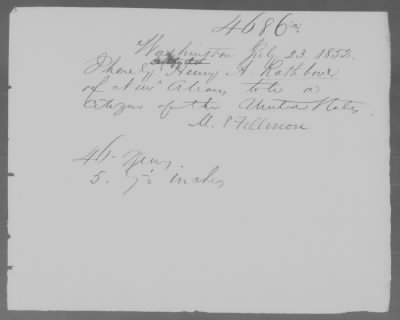 4686
Washington July 23. 1852.
Henry A. Rathbone
of New Orleans to be a
Citizen of the United States
M. Fillmore
46. Years
5. 7½ inches